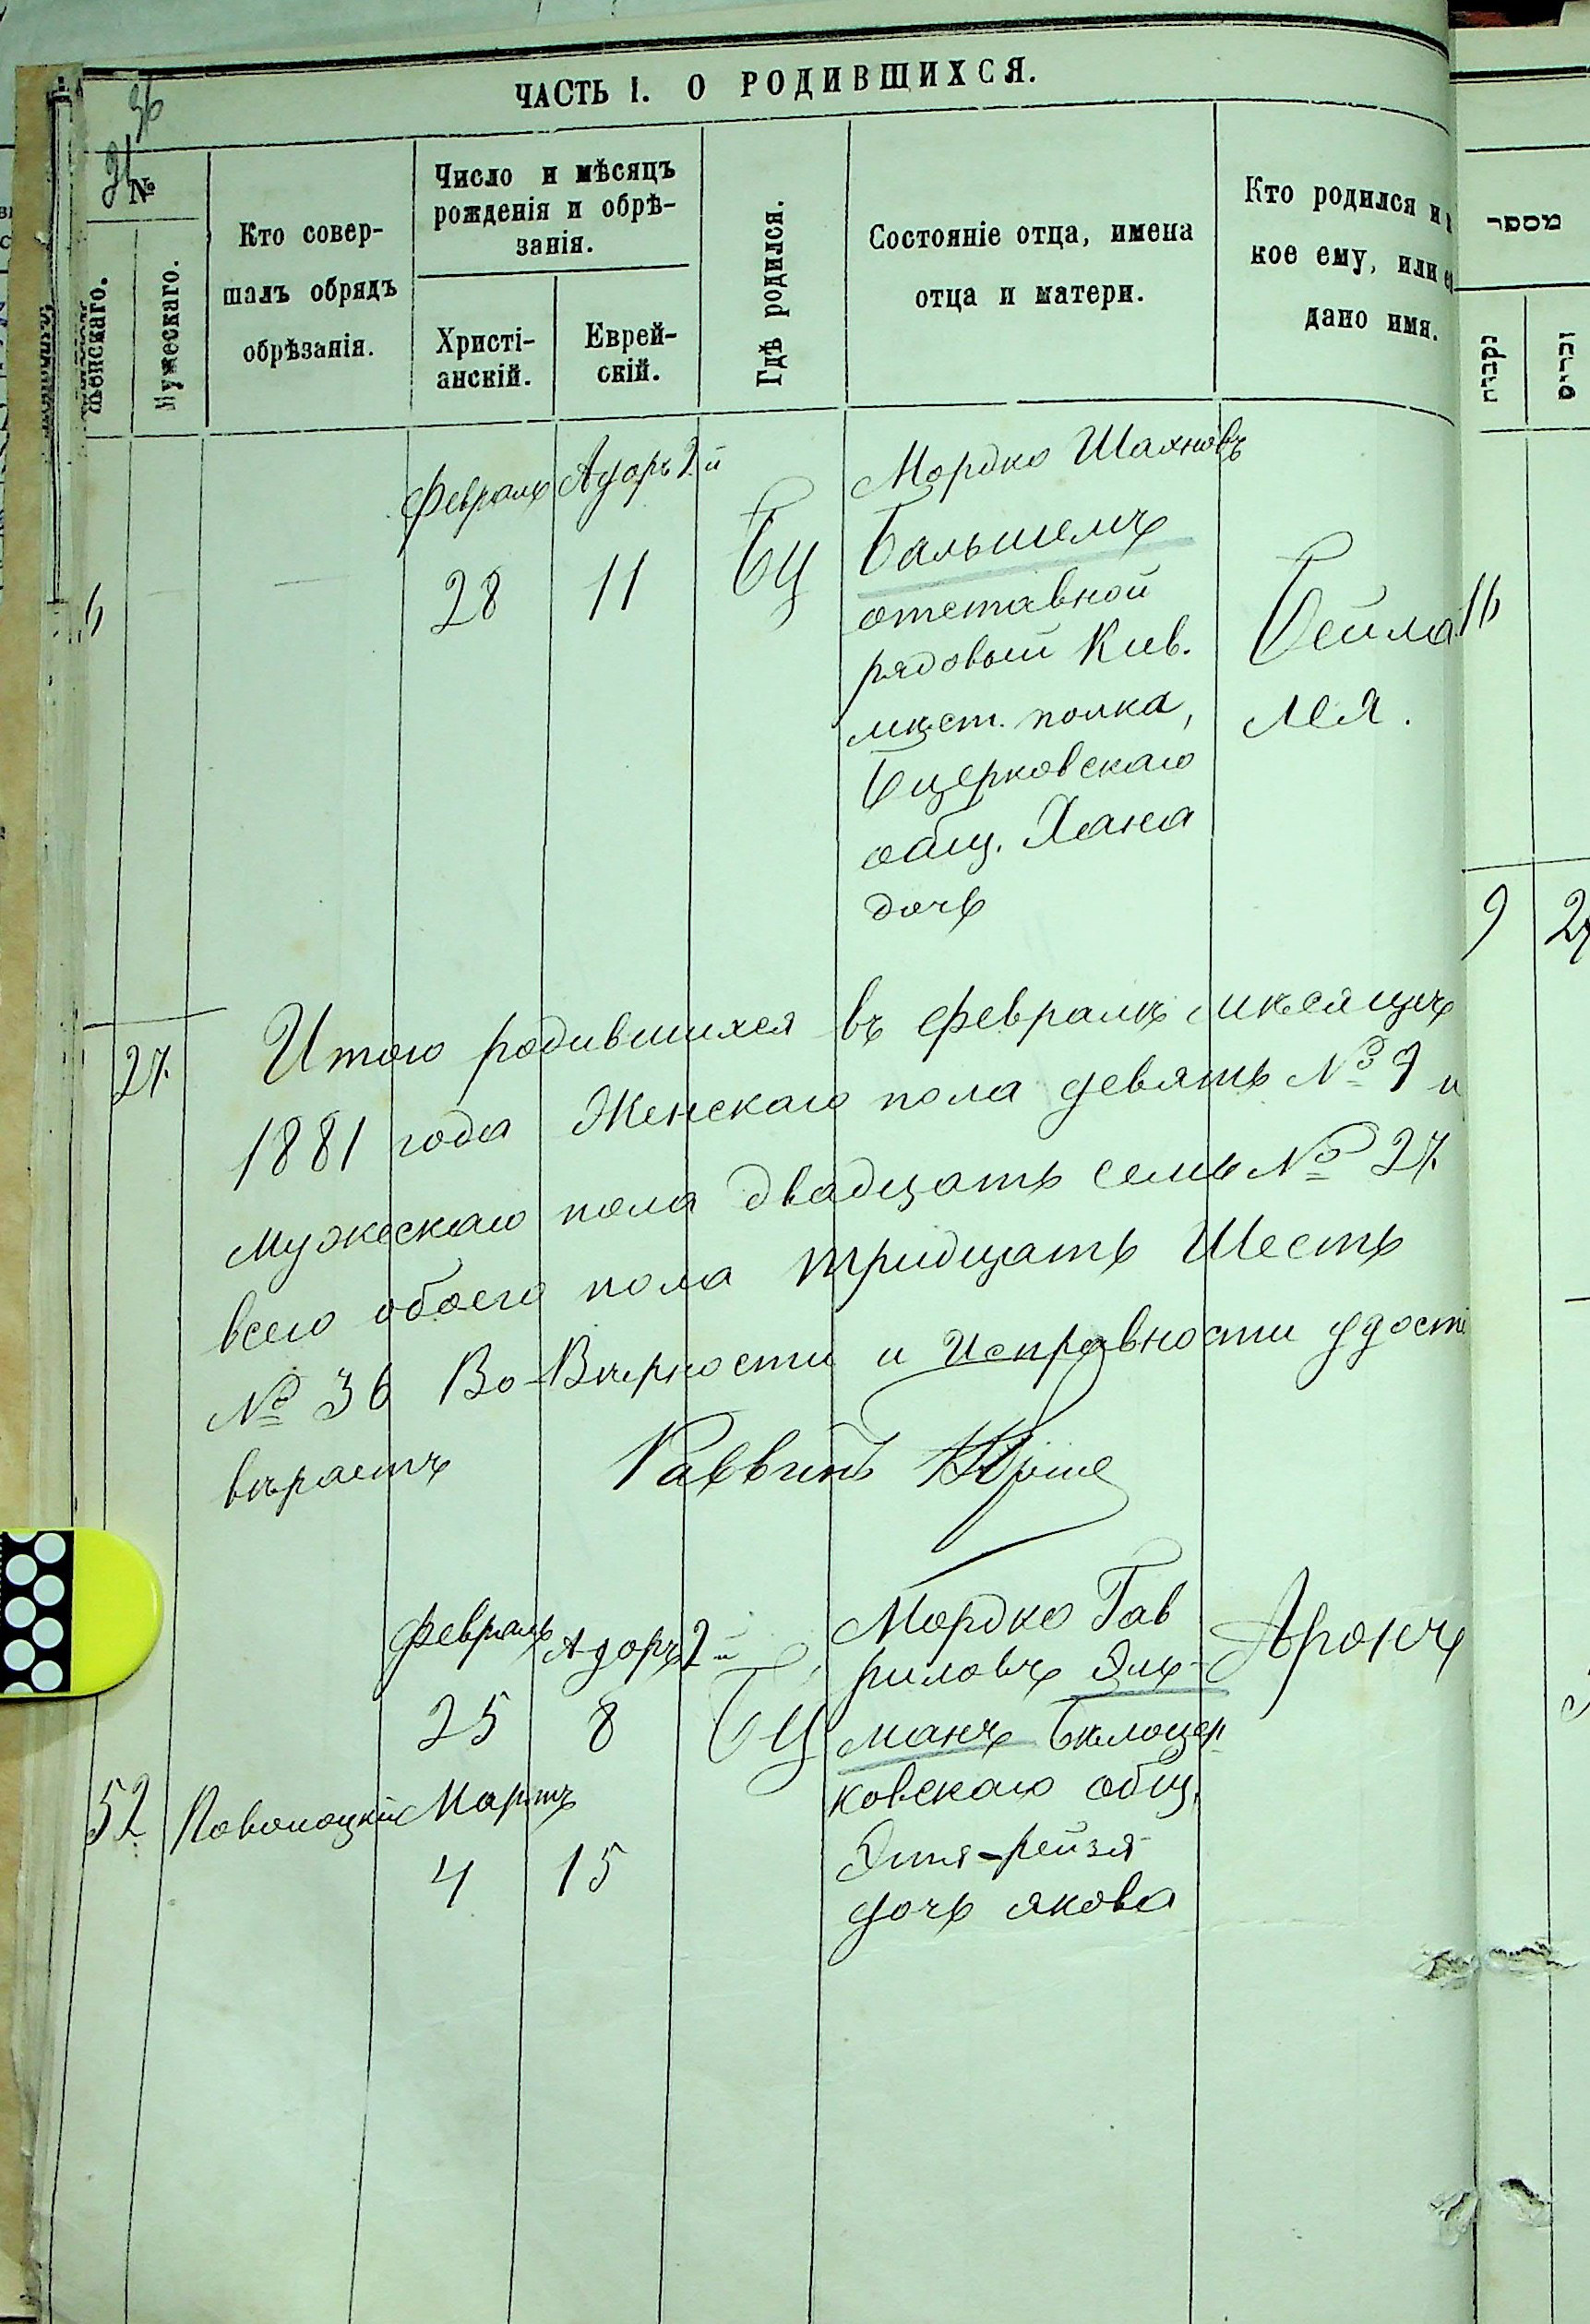 36
ЧАСТЬ I. О РОДИВШИХСЯ.
№
Женскаго.
Мужескаго.
Кто совер-
шалъ обрядъ
обрѣзанія.
Число и мѣсяцъ
рожденія и обрѣ-
занія.
Христі-
анскій.
Еврей-
скій.
Гдѣ родился.
Состояніе отца, имена
отца и матери.
Кто родился и
кое ему, или
дано имя.
מספר
נקבות
זכרים
Февраль Адоръ 2й
28 11
БЦ
Мордко Шахновъ
Бальшемъ
отставной
рядовый Киев.
мѣст. полка,
Бцерковскаго
общ. Хана
дочь
Бейла
Лея.
16
9 27
27. Итого родившихся въ Февралѣ мѣсяцѣ
1881 года Женскаго пола девять № 9 и
мужескаго пола двадцать семь № 27.
всего обоего пола тридцать Шесть
№ 36 Во-Вѣрности и Исправности удосто
вѣраетъ Раввинъ
Февраль Адоръ 2й
25 8
БЦ
Мордко Гав
риловъ Эль-
манъ Бѣлоцер
ковскаго общ.
Этя-Рейзя
дочь Якова
Аронъ
52 Поволоцкій Мартъ
4 15